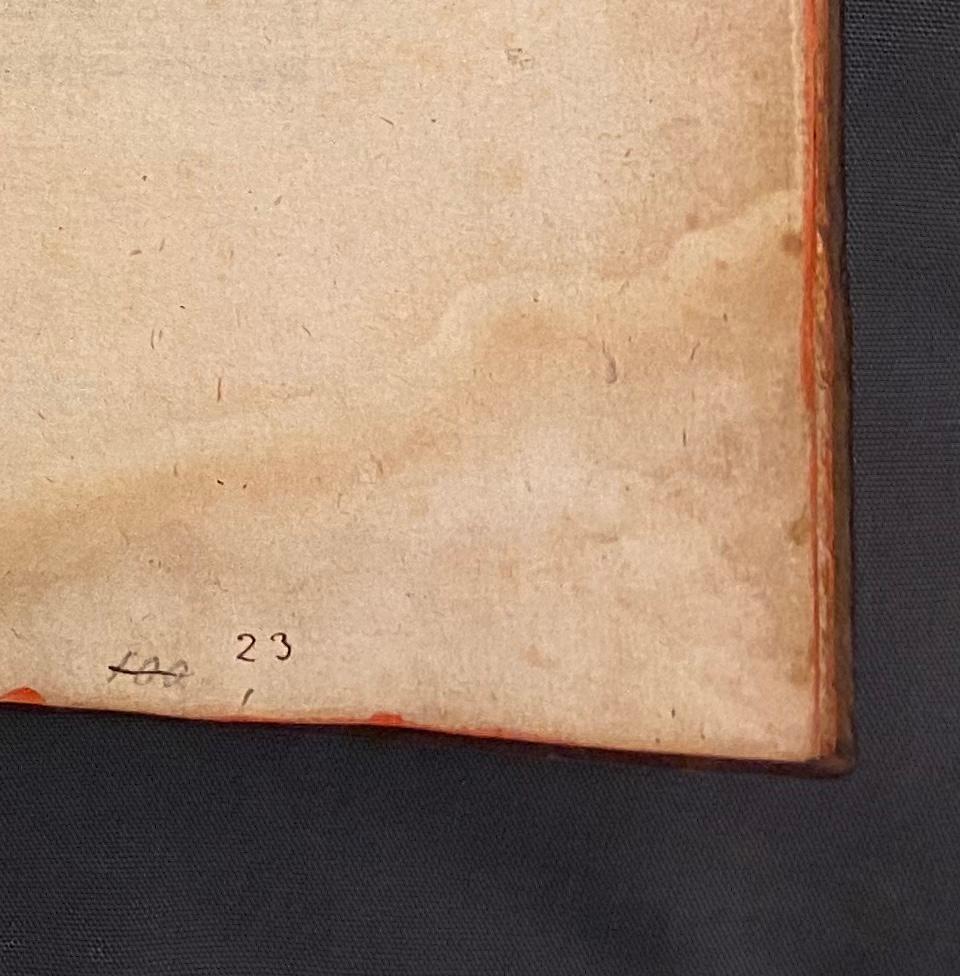 100 23